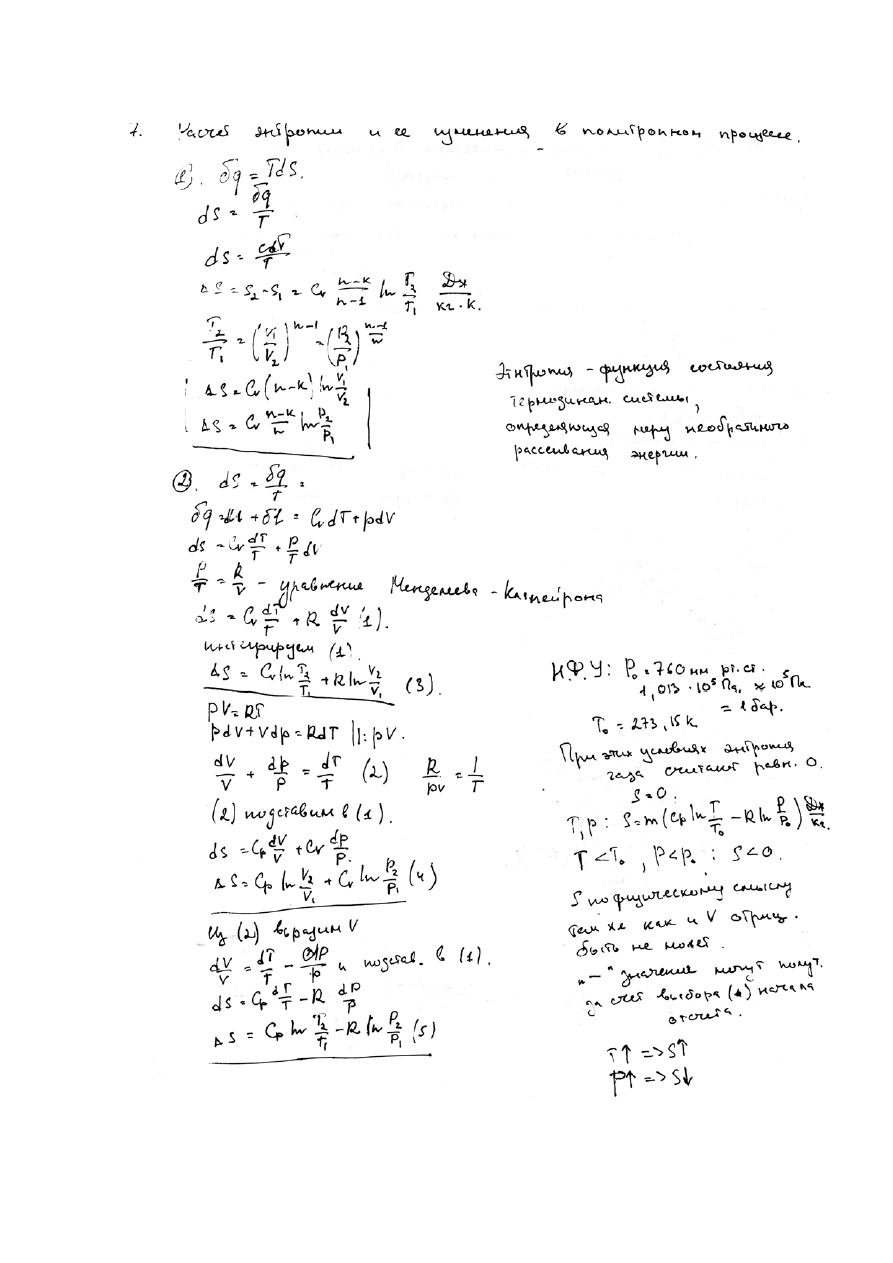 7. Расчет энтропии и ее изменения в политропном процессе.
1). δq = TdS.
dS = δq/T
dS = cdT/T
ΔS = S₂-S₁ = Cv (n-k)/(n-1) ln T₂/T₁ Дж/кг·К.
T₂/T₁ = (V₁/V₂)^(n-1) = (P₂/P₁)^((n-1)/n)
ΔS = Cv (n-k) ln V₁/V₂
ΔS = Cv (n-k)/n ln P₂/P₁
Энтропия - функция состояния
термодинам. системы,
определяющая меру необратимого
рассеивания энергии.
2). dS = δq/T =
δq = du + δl = CvdT + pdV
dS = Cv dT/T + P/T dV
P/T = R/V - уравнение Менделеева - Клапейрона
dS = Cv dT/T + R dV/V (1).
интегрируем (1).
ΔS = Cv ln T₂/T₁ + R ln V₂/V₁ (3).
PV = RT
pdV + Vdp = RdT ||: pV.
dV/V + dp/p = dT/T (2) R/pV = 1/T
(2) подставим в (1).
dS = Cp dV/V + Cv dp/p.
ΔS = Cp ln V₂/V₁ + Cv ln P₂/P₁ (4)
Из (2) выразим V
dV/V = dT/T - dp/p и подстав. в (1).
dS = Cp dT/T - R dp/p
ΔS = Cp ln T₂/T₁ - R ln P₂/P₁ (5)
Н.Ф.У: P₀ = 760 мм рт.ст.
1,013 · 10⁵ Па, ≈ 10⁵ Па
= 1 бар.
T₀ = 273,15 К
При этих условиях энтропия
газа считают равн. 0.
S=0.
T, p: S = m (Cp ln T/T₀ - R ln P/P₀) Дж/кг.
T < T₀, P < P₀ : S < 0.
S по физическому смыслу
так же как и V отриц.
быть не может.
"-" значение могут получ.
за счет выбора начала
отсчета.
T↑ => S↑
P↑ => S↓